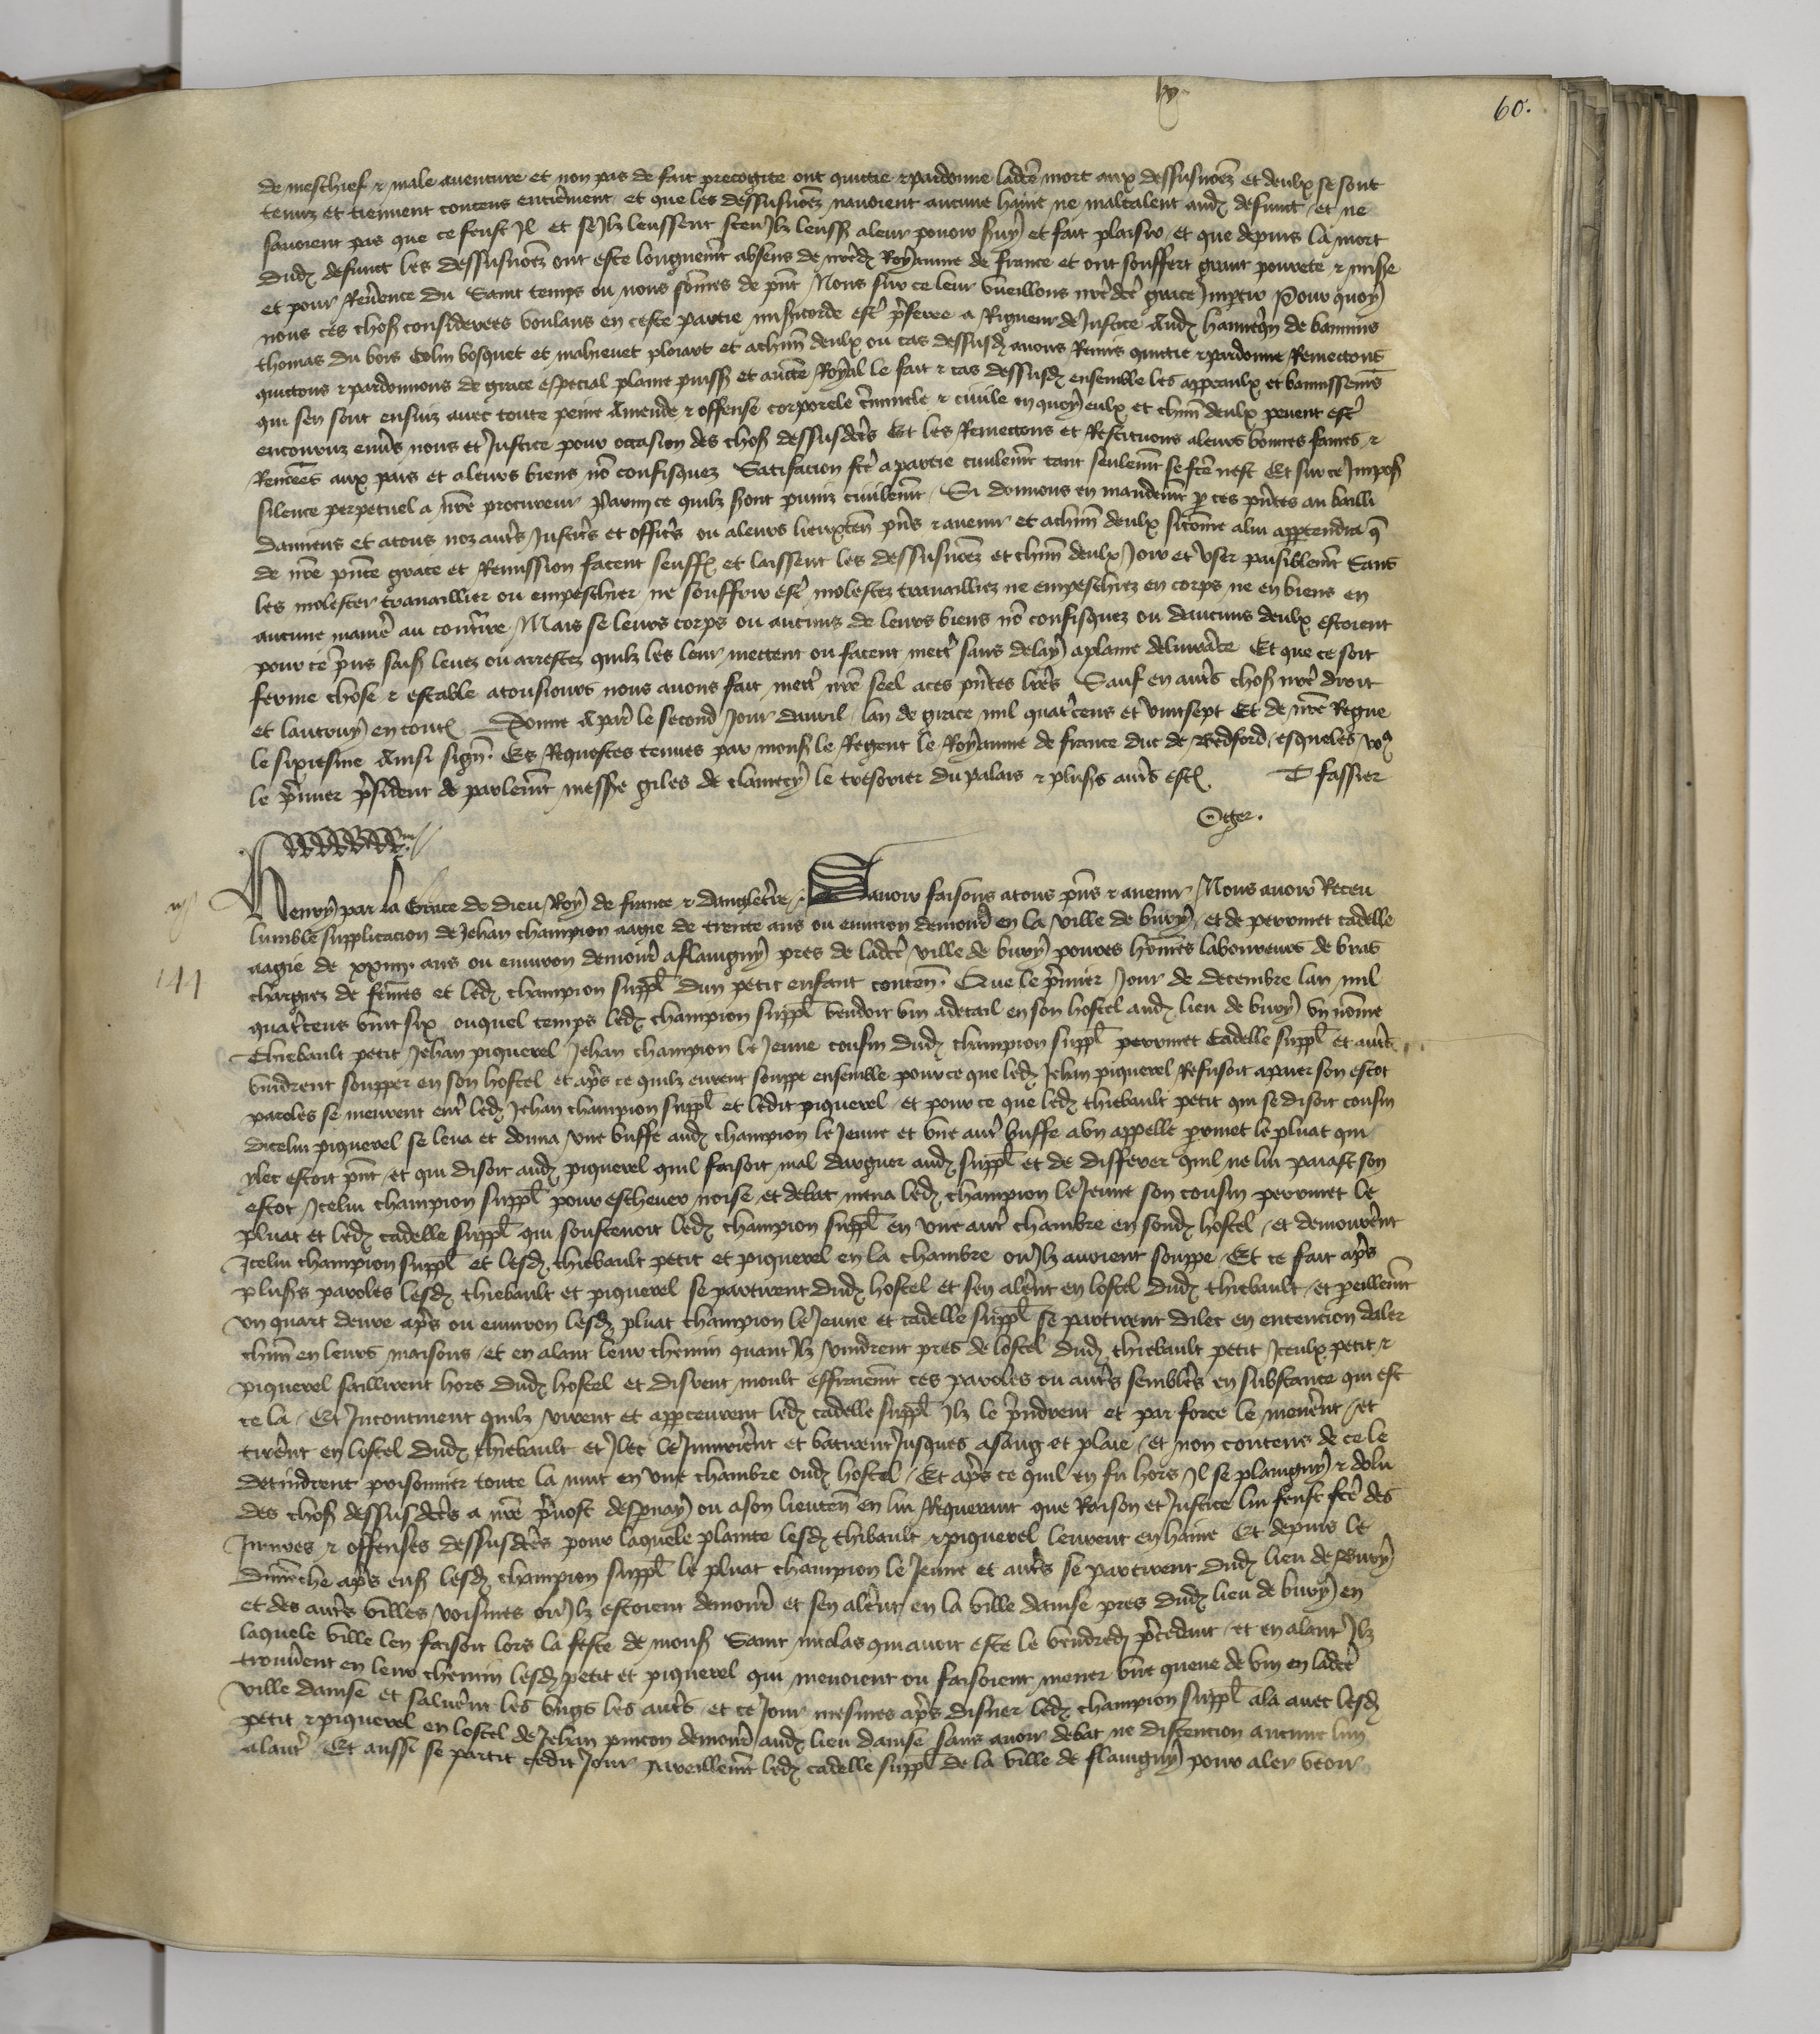 lx
60.
de meschief & male aventure et non pas de fait precogite ont quictie & pardonne ladcte mort aux dessusnomez et deulx se sont
tenuz et tiennent contens entierement et que les dessusnomez navoient aucune haine ne maltalent aud defunct et ne
savoient pas que ce feust Il et se Ilz leussent sceu Ilz leussent a leur povoir suy et fait plaisir et que depuis la mort
dud defunct les dessusnomez ont este longuemt absens de nred Royaume de france et ont souffert grant povrete & misere
et pour Reverence du Saint temps ou nous sommes de pnt Nous sur ce leur vueillons nre dcte grace Impartir Pour quoy
nous ces choses considerees voulans en ceste partie misericorde estre preferee a Rigueur de Justice Aud hannequin de
thomas du bois Colin bosquet et mahieuet ploiart et a chun deulx ou cas dessusd avons Remis quictie & pardonne Remectons
quictons & pardonnons de grace especial plaine puissance et auctte Royal le fait & cas dessusd ensemble les appeaulx et bannissemens
qui sen sont ensuiz avec toute peine Amende & offense corporele criminele & civile en quoy eulx et chun deulx pevent estre
encouruz envers nous et Justice pour occasion des choses dessusdctes Et les Remectons et Restituons a leurs bonnes fames &
Renomees aux pais et a leurs biens non confisquez Satisfacion fcte a partie civilemt tant seulemt se fcte nest Et sur ce Imposons
silence perpetuel a nre procureur Parmi ce quilz sont puniz civilemt. Si donnons en mandemt par ces pntes au bailli
damiens et a tous noz autres Justiciers et officiers ou a leurs lieuxten pns & avenir et a chun deulx sicomme a lui appartendra que
de nre pnte grace et Remission facent seuffrent et laissent les dessusnomez et chun deulx Joir et User paisiblemt Sans
les molester travaillier ou empeschier ne souffrir estre molestez travailliez ne empeschiez en corps ne en biens en
aucune maniere au contraire Mais se leurs corps ou aucuns de leurs biens non confisquez ou daucuns deulx estoient
pour ce prins saisiz levez ou arrestez quilz les leur mectent ou facent mectre sans delay a plaine delivrance Et que ce soit
ferme chose & estable a tousiours nous avons fait mectre nre seel a ces pntes lres Sauf en autres choses nre droit
et lautruy en toutes Donne A paris le second Jour davril lan de grace mil quatrecens et vintsept Et de nre Regne
le sixiesme Ainsi signe. Es Requestes tenues par mons le Regent le Royaume de france duc de Bedford esqueles vous
le premier president de parlemt messire giles de clamecy le tresorier du palais & plusrs autres estiez T fassier
Oger.
Henry par la Grace de Dieu Roy de france & dangleterre Savoir faisons a tous pns & avenir Nous avoir Receu
lumble supplicacion de Jehan champion aagie de trente ans ou environ demourant en la ville de bury et de perrinet cadelle
aagie de xxiiij. ans ou environ demourant a flavigny pres de ladcte ville de bury povres hommes laboureurs de bras
chargiez de femmes et led champion suppl dun petit enfant conten. Que le premier Jour de decembre lan mil
144
quatrecens vint six ouquel temps led champion suppl vendoit vin a detail en son hostel aud lieu de bury un nomme
Thiebault petit Jehan piquerel Jehan champion le Jeune cousin dud champion suppl perrinet Cadelle suppl et autres
vindrent soupper en son hostel et apres ce quilz eurent souppe ensemble pour ce que led Jehan piquerel Refusoit a paier son escot
paroles se meurent entre led Jehan champion suppl et ledit piquerel et pour ce que led thiebault petit qui se disoit cousin
dicelui piquerel se leva et donna une buffe aud champion le Jeune et une autre buffe a un appelle perrinet le pluat qui
ylec estoit pnt et qui disoit aud piquerel quil faisoit mal darguer aud suppl et de differer quil ne lui paiast son
escot Icelui champion suppl pour eschever noise et debat mena led champion le Jeune son cousin perrinet le
pluat et led cadelle suppl qui soustenoit led champion suppl en une autre chambre en sond hostel et demourerent
Icelui champion suppl et lesd thiebault petit et piquerel en la chambre ou Ilz avoient souppe Et ce fait apres
plusrs paroles lesd thiebault et piquerel se partirent dud hostel et sen alerent en lostel dud thiebault et pareillemt
un quart deure apres ou environ lesd pluat champion le Jeune et cadelle suppl se partirent dilec en entencion daler
chun en leurs maisons et en alant leur chemin quant Ilz vindrent pres de lostel dud thiebault petit Iceulx petit &
piquerel saillirent hors dud hostel et disrent moult effraiemt ces paroles ou autres semblables en substance qui est
ce la Et Incontinent quilz virent et apperceurent led cadelle suppl Ilz le prindrent et par force le menerent et
tirerent en lostel dud thiebault et Ilec le Iniurierent et batirent Jusques a sang et plaie et non contens de ce le
detindrent prisonnier toute la nuit en une chambre oud hostel Et apres ce quil en fu hors Il se plaingny & dolu
des choses dessusdctes a nre prevost despnay ou a son lieuten en lui Requerant que Raison et Justice lui feust fcte des
Iniures & offenses dessusdctes pour laquele plainte lesd thibault & piquerel leurent en haine Et depuis le
dimenche apres ensuivant lesd champion suppl le pluat champion le Jeune et autres se partirent dud lieu de Bury
et des autres villes voisines ou Ilz estoient demourans et sen alerent en la ville damse pres dud lieu de bury en
laquele ville len faisoit lors la feste de mons Saint nicolas qui avoit este le vendredi precedant et en alant Ilz
trouverent en leur chemin lesd petit et piquerel qui menoient ou faisoient mener une queue de vin en ladcte
ville damse et saluerent les ungs les autres et ce Jour mesmes apres disner led champion suppl ala avec lesd
petit & piquerel en lostel de Jehan pincon demourant aud lieu damse sans avoir debat ne discencion aucune lun
a lautre Et aussi se partit cedit Jour pareillemt led cadelle suppl de la ville de flavigny pour aler veoir